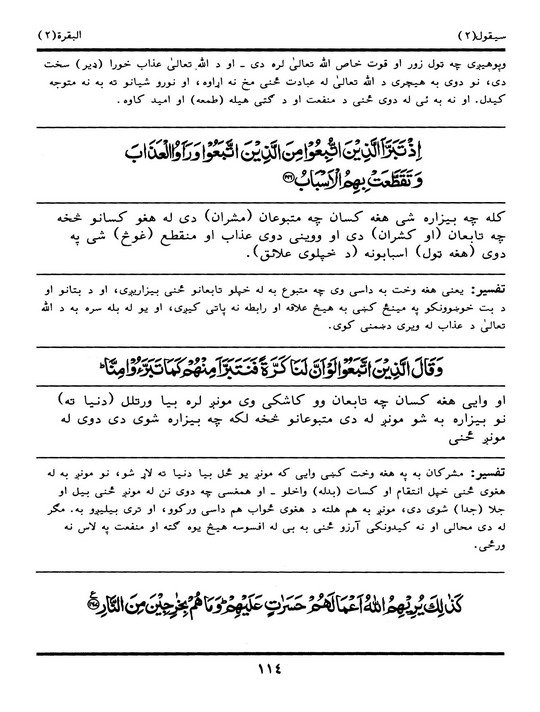 سيقول(٢)
البقرة(٢)
وپوهېږي چه ټول زور او قوت خاص الله تعالىٰ لره دى ـ او د الله تعالىٰ عذاب خورا (ډېر) سخت
دى، نو دوى به هيچرې د الله تعالىٰ له عبادت ځنې مخ نه اړاوه، او نورو شيانو ته به نه متوجه
كېدل. او نه به ئې له دوى ځنې د منفعت او د گټې هيله (طمعه) او اميد كاوه.
اِذْ تَبَرَّاَ الَّذِيْنَ اتُّبِعُوْا مِنَ الَّذِيْنَ اتَّبَعُوْا وَرَاَوُا الْعَذَابَ
وَتَقَطَّعَتْ بِهِمُ الْاَسْبَابُ ۝١٦٦
كله چه بېزاره شي هغه كسان چه متبوعان (مشران) دي له هغو كسانو څخه
چه تابعان (او كشران) دي او وويني دوى عذاب او منقطع (غوڅ) شي په
دوى (هغه ټول) اسبابونه (د خپلوى علائق).
تفسير: يعنى هغه وخت به داسې وي چه متبوع به له خپلو تابعانو ځنې بېزارېږي، او د بتانو او
د بت خوښوونكو په مينځ كښې به هيڅ علاقه او رابطه نه پاتې كېږي، او يو له بله سره به د الله
تعالىٰ د عذاب له ويرې دښمني كوي.
وَقَالَ الَّذِيْنَ اتَّبَعُوْا لَوْ اَنَّ لَنَا كَرَّةً فَنَتَبَرَّاَ مِنْهُمْ كَمَا تَبَرَّءُوْا مِنَّا ؕ
او وايي هغه كسان چه تابعان وو كاشكې وى مونږ لره بيا ورتلل (دنيا ته)
نو بېزاره به شو مونږ له دې متبوعانو څخه لكه چه بېزاره شوي دي دوى له
مونږ ځنې
تفسير: مشركان به په هغه وخت كښې وايي كه مونږ يو ځل بيا دنيا ته لاړ شو، نو مونږ به له
هغوى ځنې خپل انتقام او كسات (بدله) واخلو ـ او همغسې چه دوى نن له مونږ ځنې بېل او
جلا (جدا) شوي دي، مونږ به هم هلته د هغوى ځواب هم داسې وركوو، او ترې بېلېږو به. مگر
له دې محالې او نه كېدونكې آرزو ځنې به بې له افسوسه هيڅ يوه گټه او منفعت په لاس نه
ورځي.
كَذٰلِكَ يُرِيْهِمُ اللّٰهُ اَعْمَالَهُمْ حَسَرٰتٍ عَلَيْهِمْ ؕ وَمَا هُمْ بِخٰرِجِيْنَ مِنَ النَّارِ ۝١٦٧ ع
١١٤